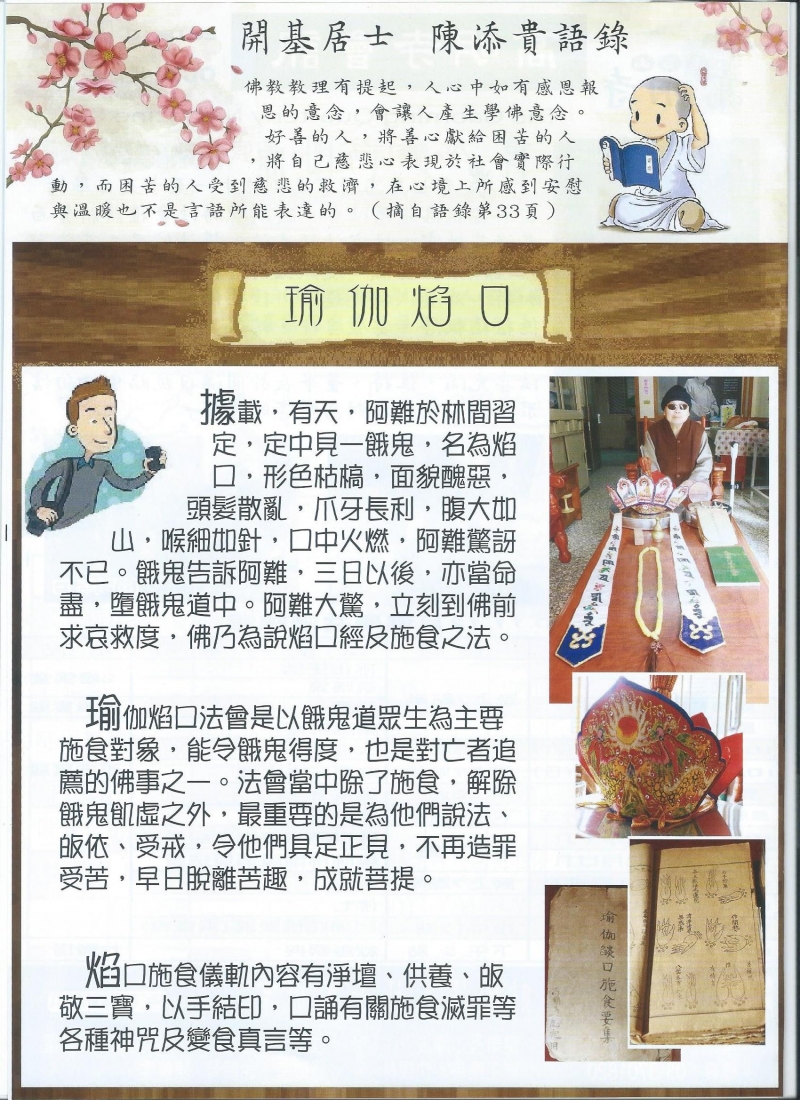 開基居士 陳添貴語錄
佛教教理有提起，人心中如有感恩報
恩的意念，會讓人產生學佛意念。
好善的人，將善心獻給困苦的人
，將自己慈悲心表現於社會實際行
動，而困苦的人受到慈悲的救濟，在心境上所感到安慰
與溫暖也不是言語所能表達的。（摘自語錄第33頁）
瑜伽焰口
據載，有天，阿難於林間習
定，定中見一餓鬼，名為焰
口，形色枯槁，面貌醜惡，
頭髮散亂，爪牙長利，腹大如
山，喉細如針，口中火燃，阿難驚訝
不已。餓鬼告訴阿難，三日以後，亦當命
盡，墮餓鬼道中。阿難大驚，立刻到佛前
求哀救度，佛乃為說焰口經及施食之法。
瑜伽焰口法會是以餓鬼道眾生為主要
施食對象，能令餓鬼得度，也是對亡者追
薦的佛事之一。法會當中除了施食，解除
餓鬼飢虛之外，最重要的是為他們說法、
皈依、受戒，令他們具足正見，不再造罪
受苦，早日脫離苦趣，成就菩提。
焰口施食儀軌內容有淨壇、供養、皈
敬三寶，以手結印，口誦有關施食滅罪等
各種神咒及變食真言等。
瑜伽燄口施食要集